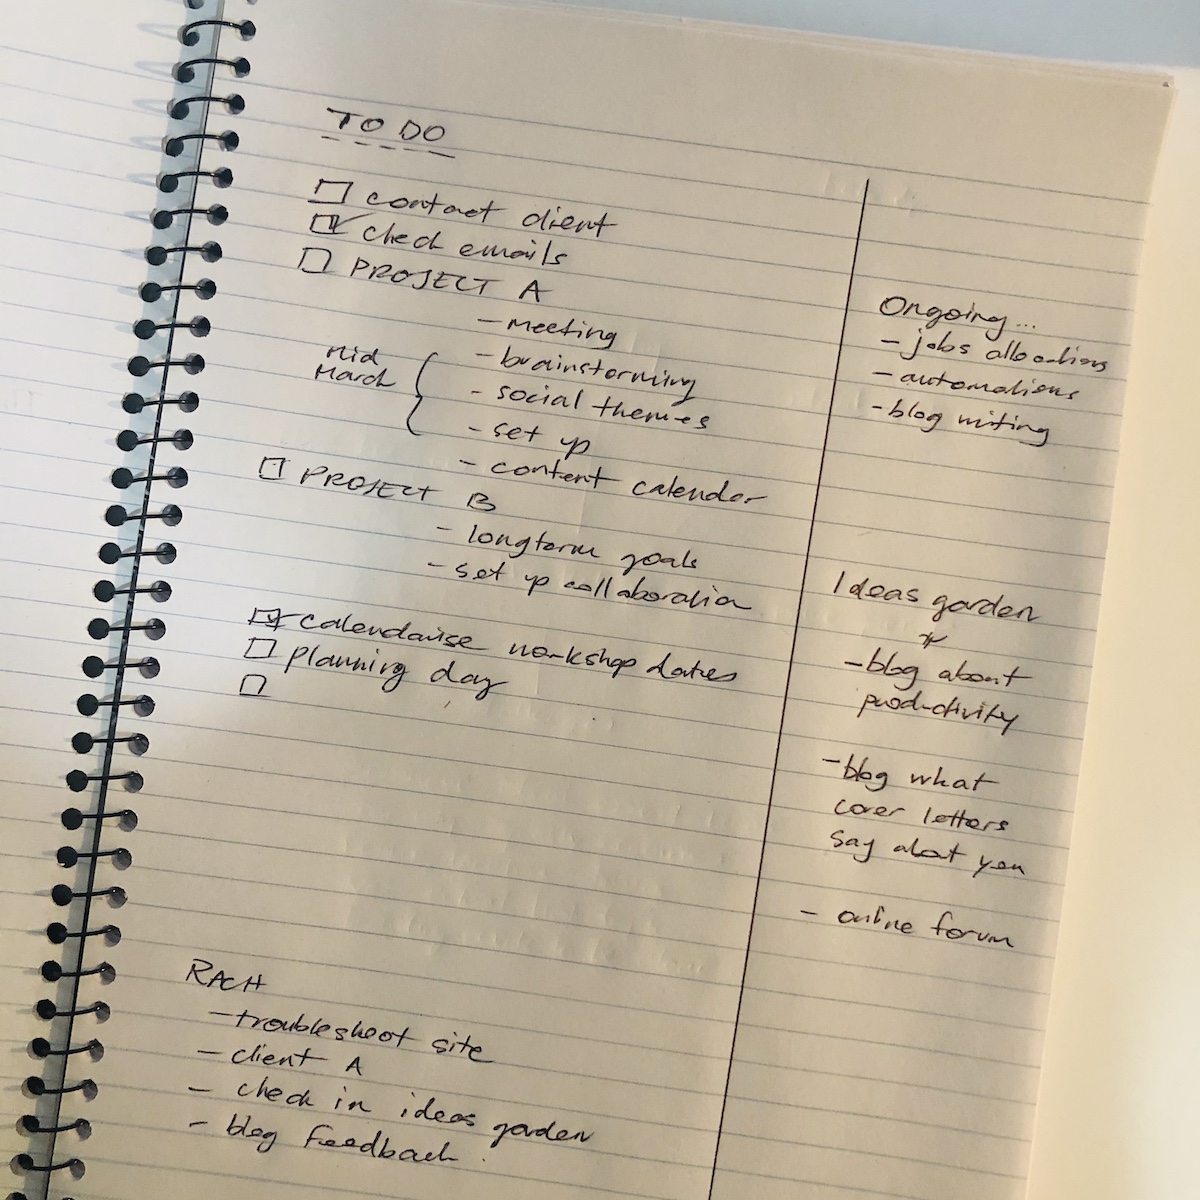 TO DO
contact client
check emails
PROJECT A
- meeting
- brainstorming
- social themes
- set up
- content calendar
Mid
March
PROJECT B
- longterm goals
- set up collaboration
calendarise workshop dates
planning day
RACH
- troubleshoot site
- client A
- check in ideas garden
- blog feedback.
Ongoing...
- jobs allocations
- automations
- blog writing
Ideas garden
- blog about
productivity
- blog what
cover letters
say about you
- online forum